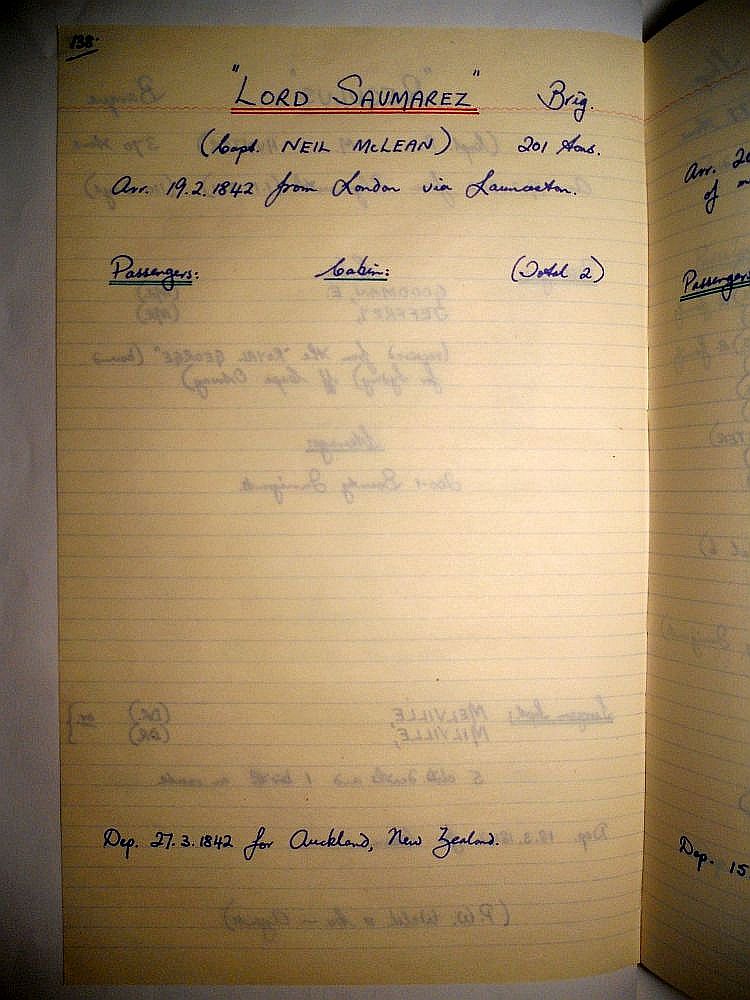 138.
"LORD SAUMAREZ" Brig.
(Capt. NEIL McLEAN) 201 tons.
Arr. 19.2.1842 from London via Launceston.
Passengers: Cabin: (Total 2)
Dep. 27.3.1842 for Auckland, New Zealand.
Arr. 20
of
Passengers
Dep. 15